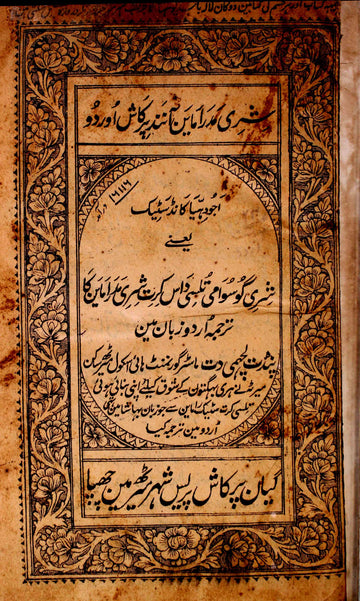 شری مدراماین آنند پرکاش اوردو
اجودہیا کانڈ سٹیک
یعنے
شری گوسوامی تلسی داس کرت شری مدراماین کا
ترجمہ اُردو زبان مین
پنڈت لچھمی دت ماسٹر گورنمنٹ ہائی اسکول میرٹھ ساکن
میرٹھ نے ہری بھگتون کے شوق کیلئے اپنی بنائی ہوئی
تلسی کرت سٹیک رامائن سے جو زبان بہاشا مین تھی
اُردو مین ترجمہ کیا
گیان پرکاش پریس شہر میرٹھ مین چھپا